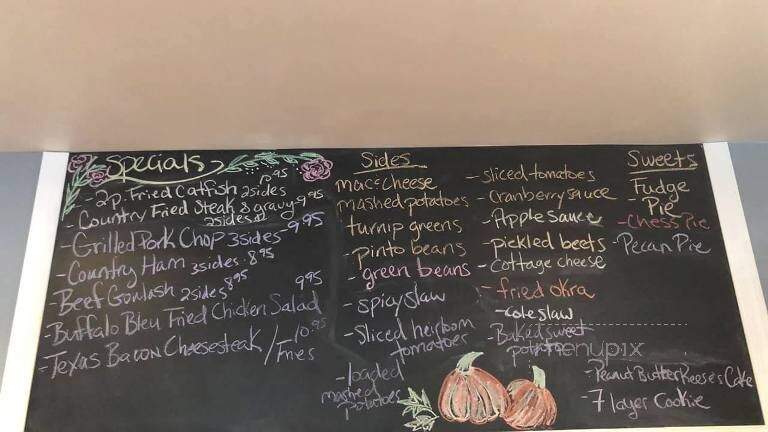 Specials
- 2p. Fried Catfish 2sides
- Country Fried Steak & gravy 9.95
2sides
- Grilled Pork Chop 3sides 9.95
- Country Ham 3sides 8.95
- Beef Goulash 2sides 8.95
- Buffalo Bleu Fried Chicken Salad 9.95
- Texas Bacon Cheesesteak / Fries 10.95
Sides
mac & cheese
mashed potatoes
turnip greens
- pinto beans
- green beans
- spicy slaw
- Sliced heirloom
tomatoes
- loaded
mashed
potatoes
- sliced tomatoes
- Cranberry sauce
- Apple sauce
- pickled beets
- Cottage cheese
- fried okra
- cole slaw
Baked sweet
menupix
Sweets
Fudge
- Pie
- Chess Pie
- Pecan Pie
- Peanut Butter Reese's Cake
- 7 layer Cookie